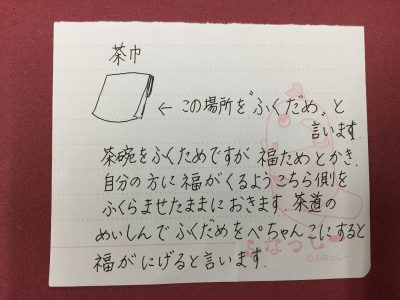 茶巾
← この場所を"ふくだめ"と
言います.
茶碗をふくためですが 福ためとかき.
自分の方に福がくるようこちら側を
ふくらませたままにおきます. 茶道の
めいしんで ふくだめをぺちゃんこにすると
福がにげると言います.
ふなっしー
©ふなっしー